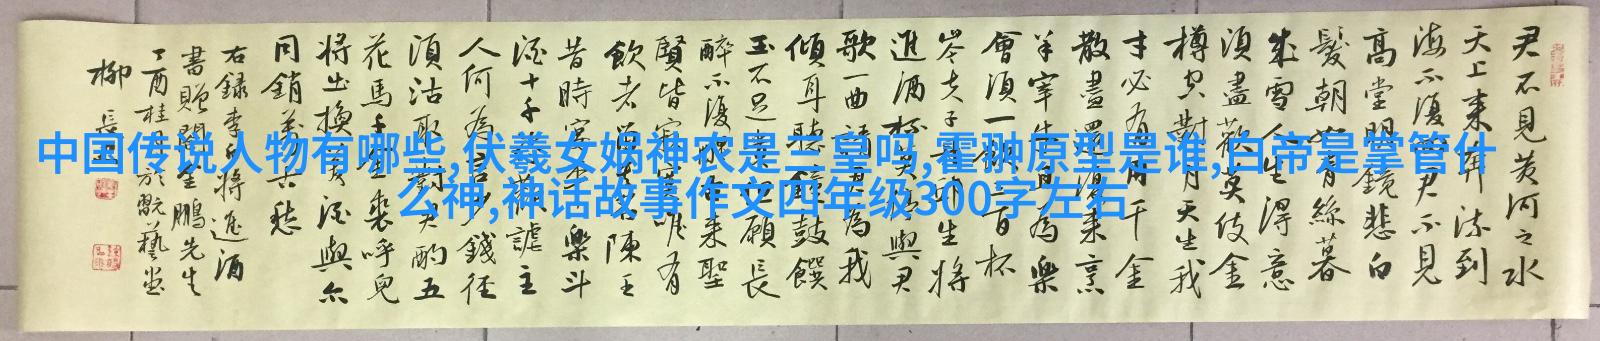 中国传说人物有哪些,伏羲女娲神农是三皇吗,霍翀原型是谁,白帝是掌管什
么神,神话故事作文四年级300字左右
君不見黄河之水
天上来奔流到
海不復回君不見
高堂明鏡悲白
髮朝如青絲暮
成雪人生得意
須盡歡莫使金
樽空對月天生我
才必有用千金
散盡還復来烹
羊宰牛且為樂
會須一飲三百杯
岑夫子丹丘生將
進酒杯莫停與君
歌一曲請君為我
傾耳聽鐘鼓饌
玉不足貴但願長
醉不復醒古来聖
賢皆寂寞唯有
飲者留其名陳王
昔時宴平樂斗
酒十千恣歡謔主
人何為言少錢徑
須沽取對君酌五
花馬千金裘呼兒
將出換美酒與尔
同銷萬古愁
右録李白將進酒
書贈金鵬先生
丁酉桂月於翫藝堂
柳長